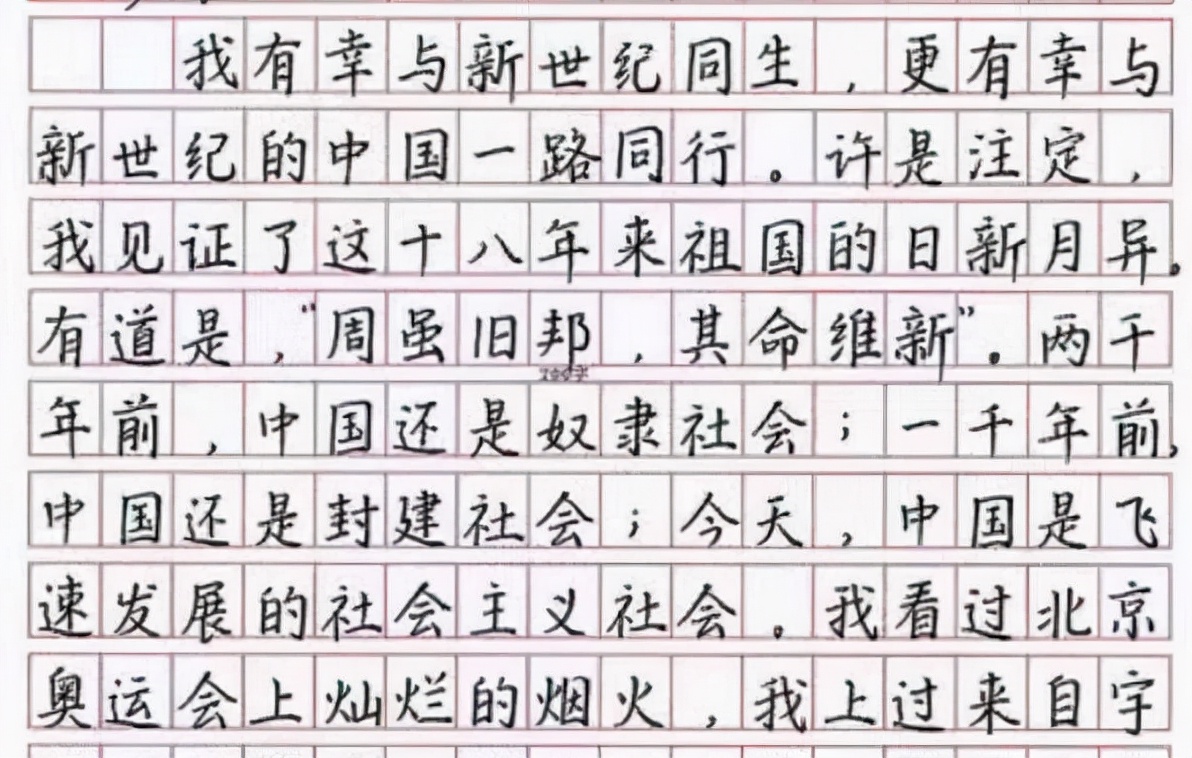 我有幸与新世纪同生，更有幸与
新世纪的中国一路同行。许是注定，
我见证了这十八年来祖国的日新月异。
有道是，“周虽旧邦，其命维新”。两千
年前，中国还是奴隶社会；一千年前，
中国还是封建社会；今天，中国是飞
速发展的社会主义社会。我看过北京
奥运会上灿烂的烟火，我上过来自宇